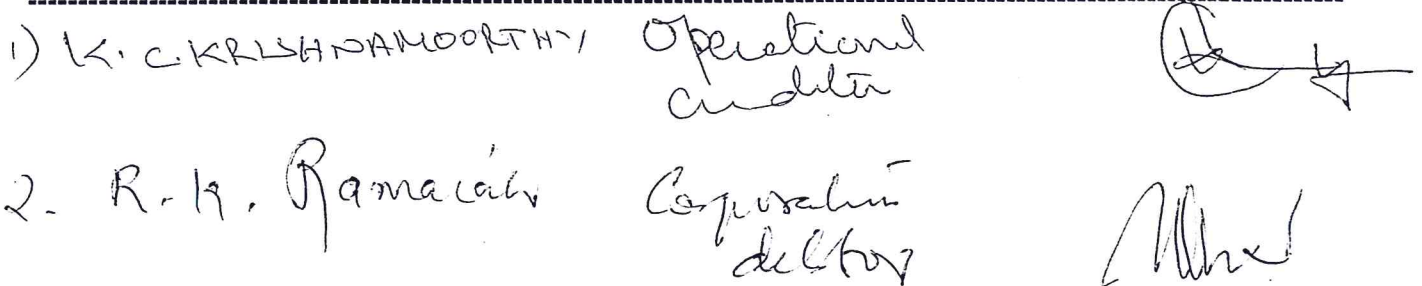 1) K. C. KRISHNAMOORTHY Operational
creditor
2. R. K. Corporate
debtor